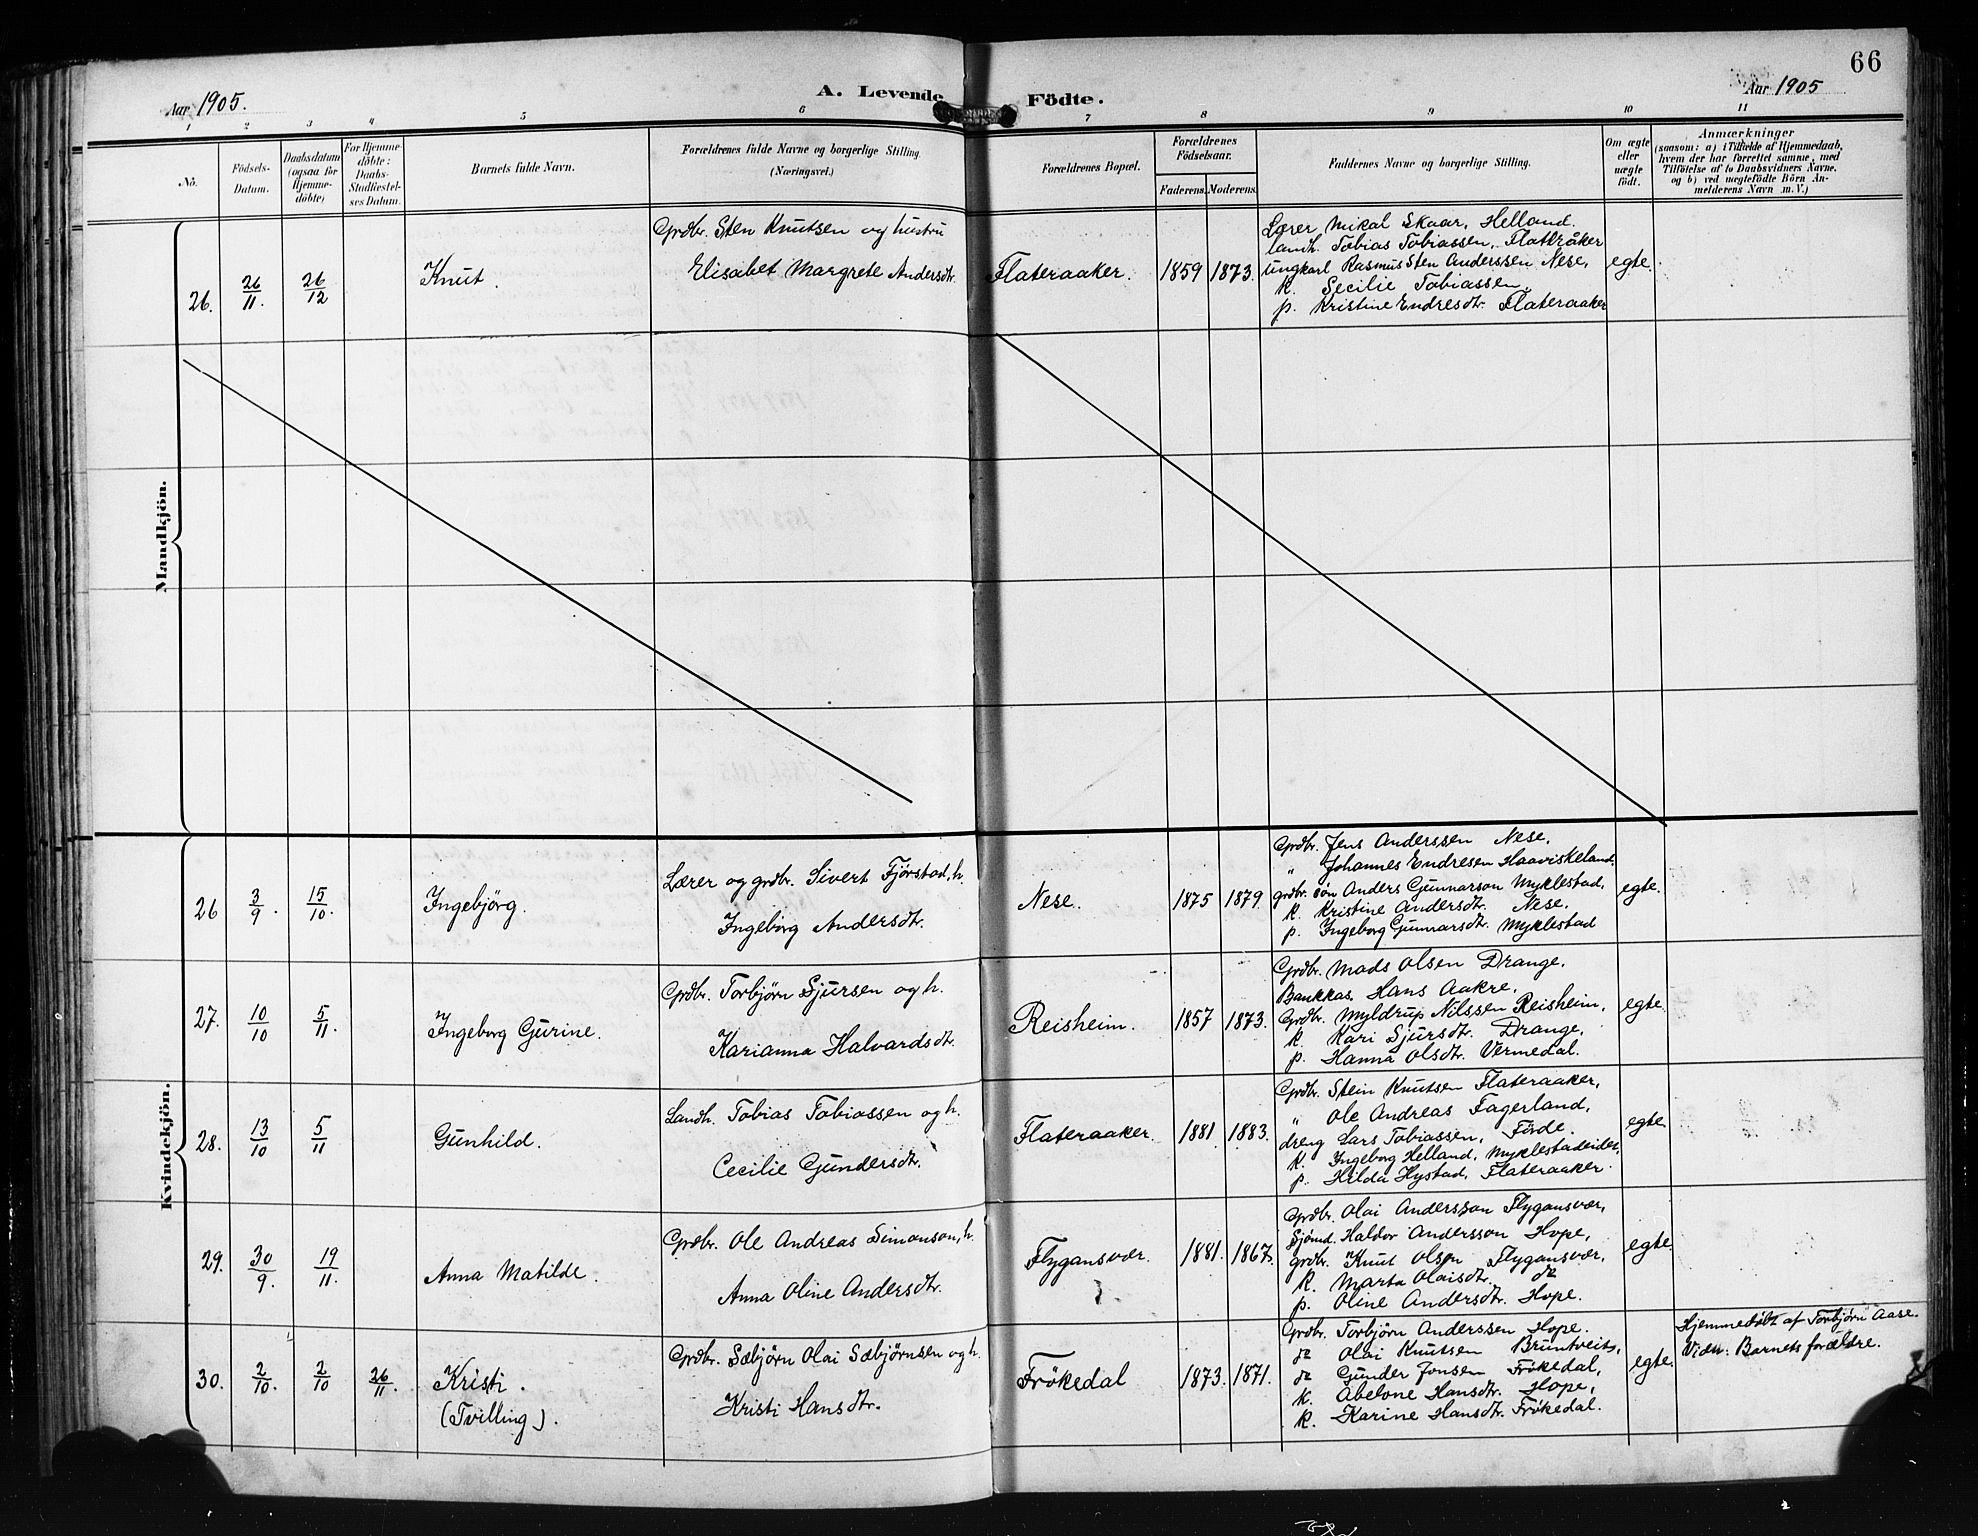 66
Aar 1905.
A. Levende
Födte.
Aar 1905
1 2 3 4 5 6 7 8 9 10 11
No.
Födsels-
Datum.
Daabsdatum
(ogsaa for
Hjemme-
döbte)
For Hjemme-
döbte:
Daabs-
Stadfæstel-
ses Datum.
Barnets fulde Navn.
Forældrenes fulde Navne og borgerlige Stilling.
(Næringsvei.)
Forældrenes Bopæl.
Forældrenes
Födselsaar.
Faderens. Moderens.
Faddernes Navne og borgerlige Stilling.
Om ægte
eller
uægte
födt.
Anmærkninger
(saasom: a) i Tilfælde af Hjemmedaab,
hvem der har forrettet samme, med
Tilföielse af to Daabsvidners Navne,
og b) ved uægtefödte Börn An-
melderens Navn m. V.)
Mandkjön.
26.
26/11.
26/12
Knut.
Grdbr. Sten Knutsen og hustru
Elisabet Margrete Andersdtr.
Flateraaker.
1859
1873.
Lærer Mikal Skaar, Helland.
landh. Tobias Tobiassen, Flatkråker
ungkarl Rasmus Sten Anderssen Nese,
k. Secilie Tobiassen,
p. Kristine Endresdtr. Flateraaker
egte.
Kvindekjön.
26
3/9.
15/10.
Ingebjörg.
Lærer og grdbr. Sivert Fjörstad, h.
Ingeborg Andersdtr.
Nese.
1875
1879.
Grdbr. Jens Anderssen Nese,
" Johannes Endresen Haaviskeland.
grdbr. sön Anders Gunnarson Myklestad,
k. Kristine Andersdtr. Nese.
p. Ingeborg Gunnarsdtr. Myklestad
egte.
27.
10/10
5/11.
Ingeborg Gurine.
Grdbr. Torbjörn Sjursen og h.
Karianna Halvardsdtr.
Reisheim.
1857
1873.
Grdbr. Mads Olsen Drange,
Bankkas. Hans Aakre,
Grdbr. Myldrup Nilssen Reisheim,
k. Kari Sjursdtr. Drange,
p. Hanna Olsdtr. Vermedal.
egte.
28.
13/10
5/11
Gunhild.
Landh. Tobias Tobiassen og h.
Cecilie Gundersdtr.
Flateraaker.
1881
1883.
Grdbr. Stein Knutsen Flateraaker,
" Ole Andreas Fagerland,
dreng Lars Tobiassen, Förde.
k. Ingeborg Helland, Myklestadeidet,
p. Hilda Hystad, Flateraaker.
egte.
29.
30/9.
19/11.
Anna Matilde.
Grdbr. Ole Andreas Simonson, h.
Anna Oline Andersdtr.
Flygansvær.
1881.
1867.
Grdbr. Olai Anderson Flygansvær,
Sjömd. Haldor Andersson Hope,
grdbr. Knut Olsen Flygansvær,
k. Marta Olaisdtr. do
p. Oline Andersdtr. Hope.
egte.
30.
2/10.
2/10
26/11.
Kristi.
(Tvilling).
Grdbr. Sæbjörn Olai Sæbjörnsen og h.
Kristi Hansdtr.
Frökedal
1873.
1871.
Grdbr. Torbjörn Anderssen Hope.
do Olai Knutsen Bruntveit,
do Gunder Jonsen Frökedal,
k. Abelone Hansdtr. Hope,
k. Karine Hansdtr. Frökedal.
egte.
Hjemmedöbt af Torbjörn Aase.
Vidn: Barnets forældre.